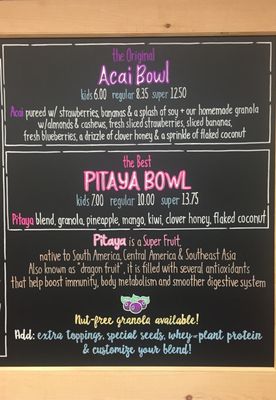 the Original
Acai Bowl
kids 6.00 regular 8.35 super 12.50
Acai pureed w/ strawberries, bananas & a splash of soy + our homemade granola
w/almonds & cashews, fresh sliced strawberries, sliced bananas,
fresh blueberries, a drizzle of clover honey & a sprinkle of flaked coconut
the Best
PITAYA BOWL
kids 7.00 regular 10.00 super 13.75
Pitaya blend, granola, pineapple, mango, kiwi, clover honey, flaked coconut
Pitaya is a Super Fruit,
native to South America, Central America & Southeast Asia
Also known as "dragon fruit", it is filled with several antioxidants
that help boost immunity, body metabolism and smoother digestive system
Nut-free granola available!
Add: extra toppings, special seeds, whey-plant protein
& customize your blend!